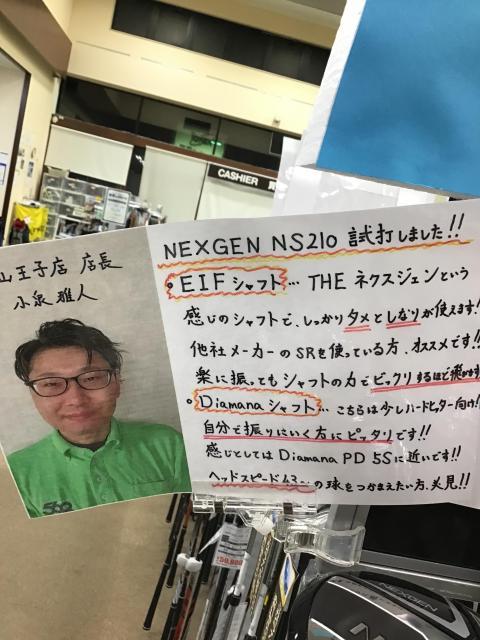 CASHIER
山王子店 店長
小泉 雅人
NEXGEN NS210 試打しました!!
• EIFシャフト… THE ネクスジェンという
感じのシャフトで、しっかりタメとしなりが使えます!
他社メーカーのSRを使っている方、オススメです!!
楽に振ってもシャフトの力でビックリするほど飛びます
• Diamanaシャフト… こちらは少しハードヒッター向け!
自分で振りにいく方にピッタリです!!
感じとしてはDiamana PD 5Sに近いです!!
ヘッドスピード43〜の球をつかまえたい方、必見!!
560
NEXGEN